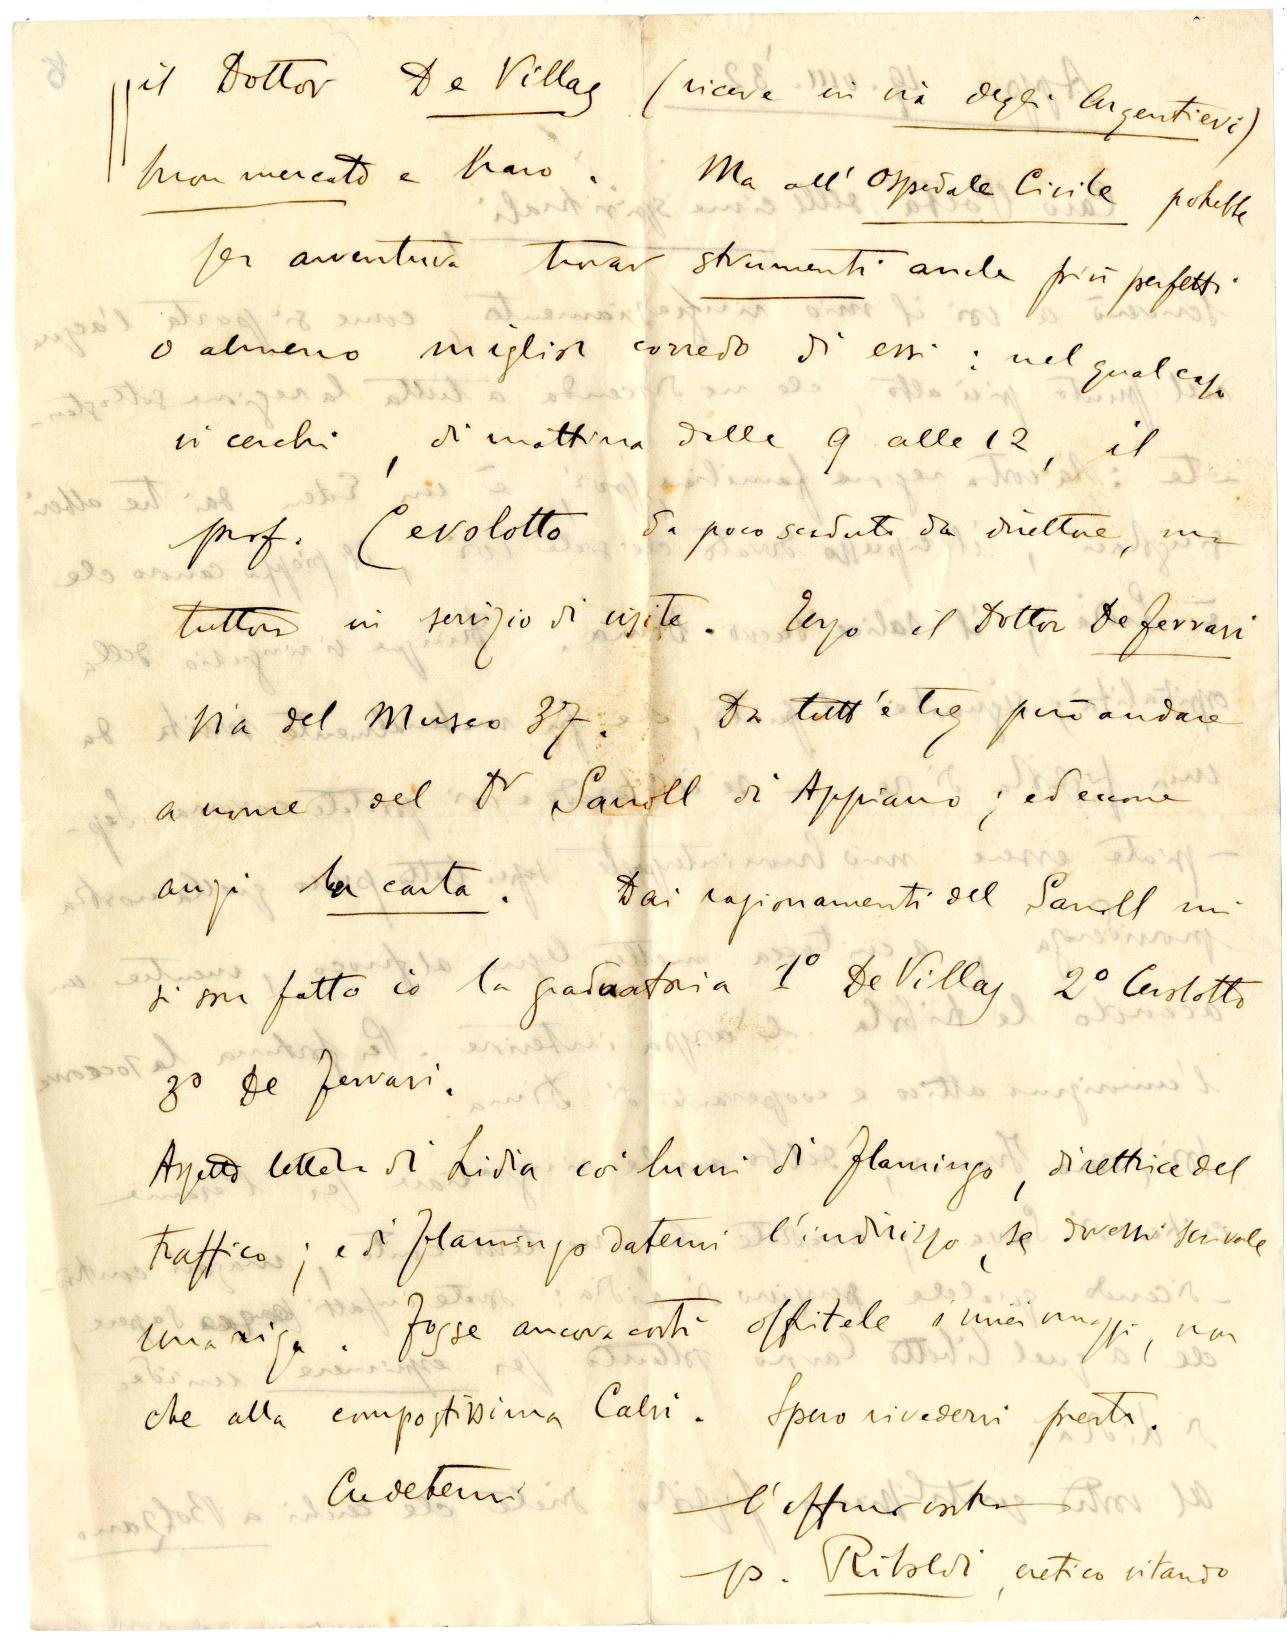 il Dottor De Villas (riceve in via degli Argentieri)
buon mercato e bravo. Ma all'Ospedale Civile potrebbe
per avventura trovar strumenti anche più perfetti
o almeno miglior corredo di essi: nel qual caso
vi cerchi, di mattina dalle 9 alle 12, il
prof. Cevolotto da poco scaduto da direttore, ma
tuttora in servizio di visite. Terzo il Dottor De Ferrari
via del Museo 37. Da tutt'e tre può andare
a nome del Dr Sanoll di Appiano; ed eccone
anzi la carta. Dai ragionamenti del Sanoll mi
son fatto io la graduatoria 1º De Villas 2º Cevolotto
3º De Ferrari.
Aspetto lettera di Lidia coi lumi di Flamingo, direttrice del
traffico; e di Flamingo datemi l'indirizzo, se dovessi scriverle
una riga. Fosse ancora costì offritele i miei omaggi, non
che alla compostissima Calvi. Spero rivedervi presto.
Credetemi
l'affmo vostro
p. Riboldi, eretico vitando